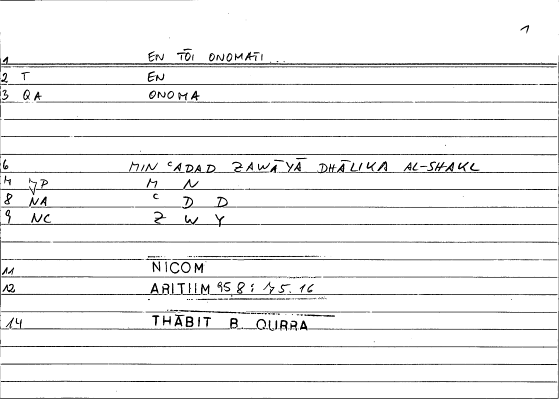 1
1 EN TŌI ONOMATI...
2 T EN
3 QA ONOMA
6 MIN ᶜADAD ZAWĀYĀ DHĀLIKA AL-SHAKL
P M N
8 NA ᶜ D D
9 NC Z W Y
11 NICOM
12 ARITIIM 95,8: 75.16
14 THĀBIT B. QURRA